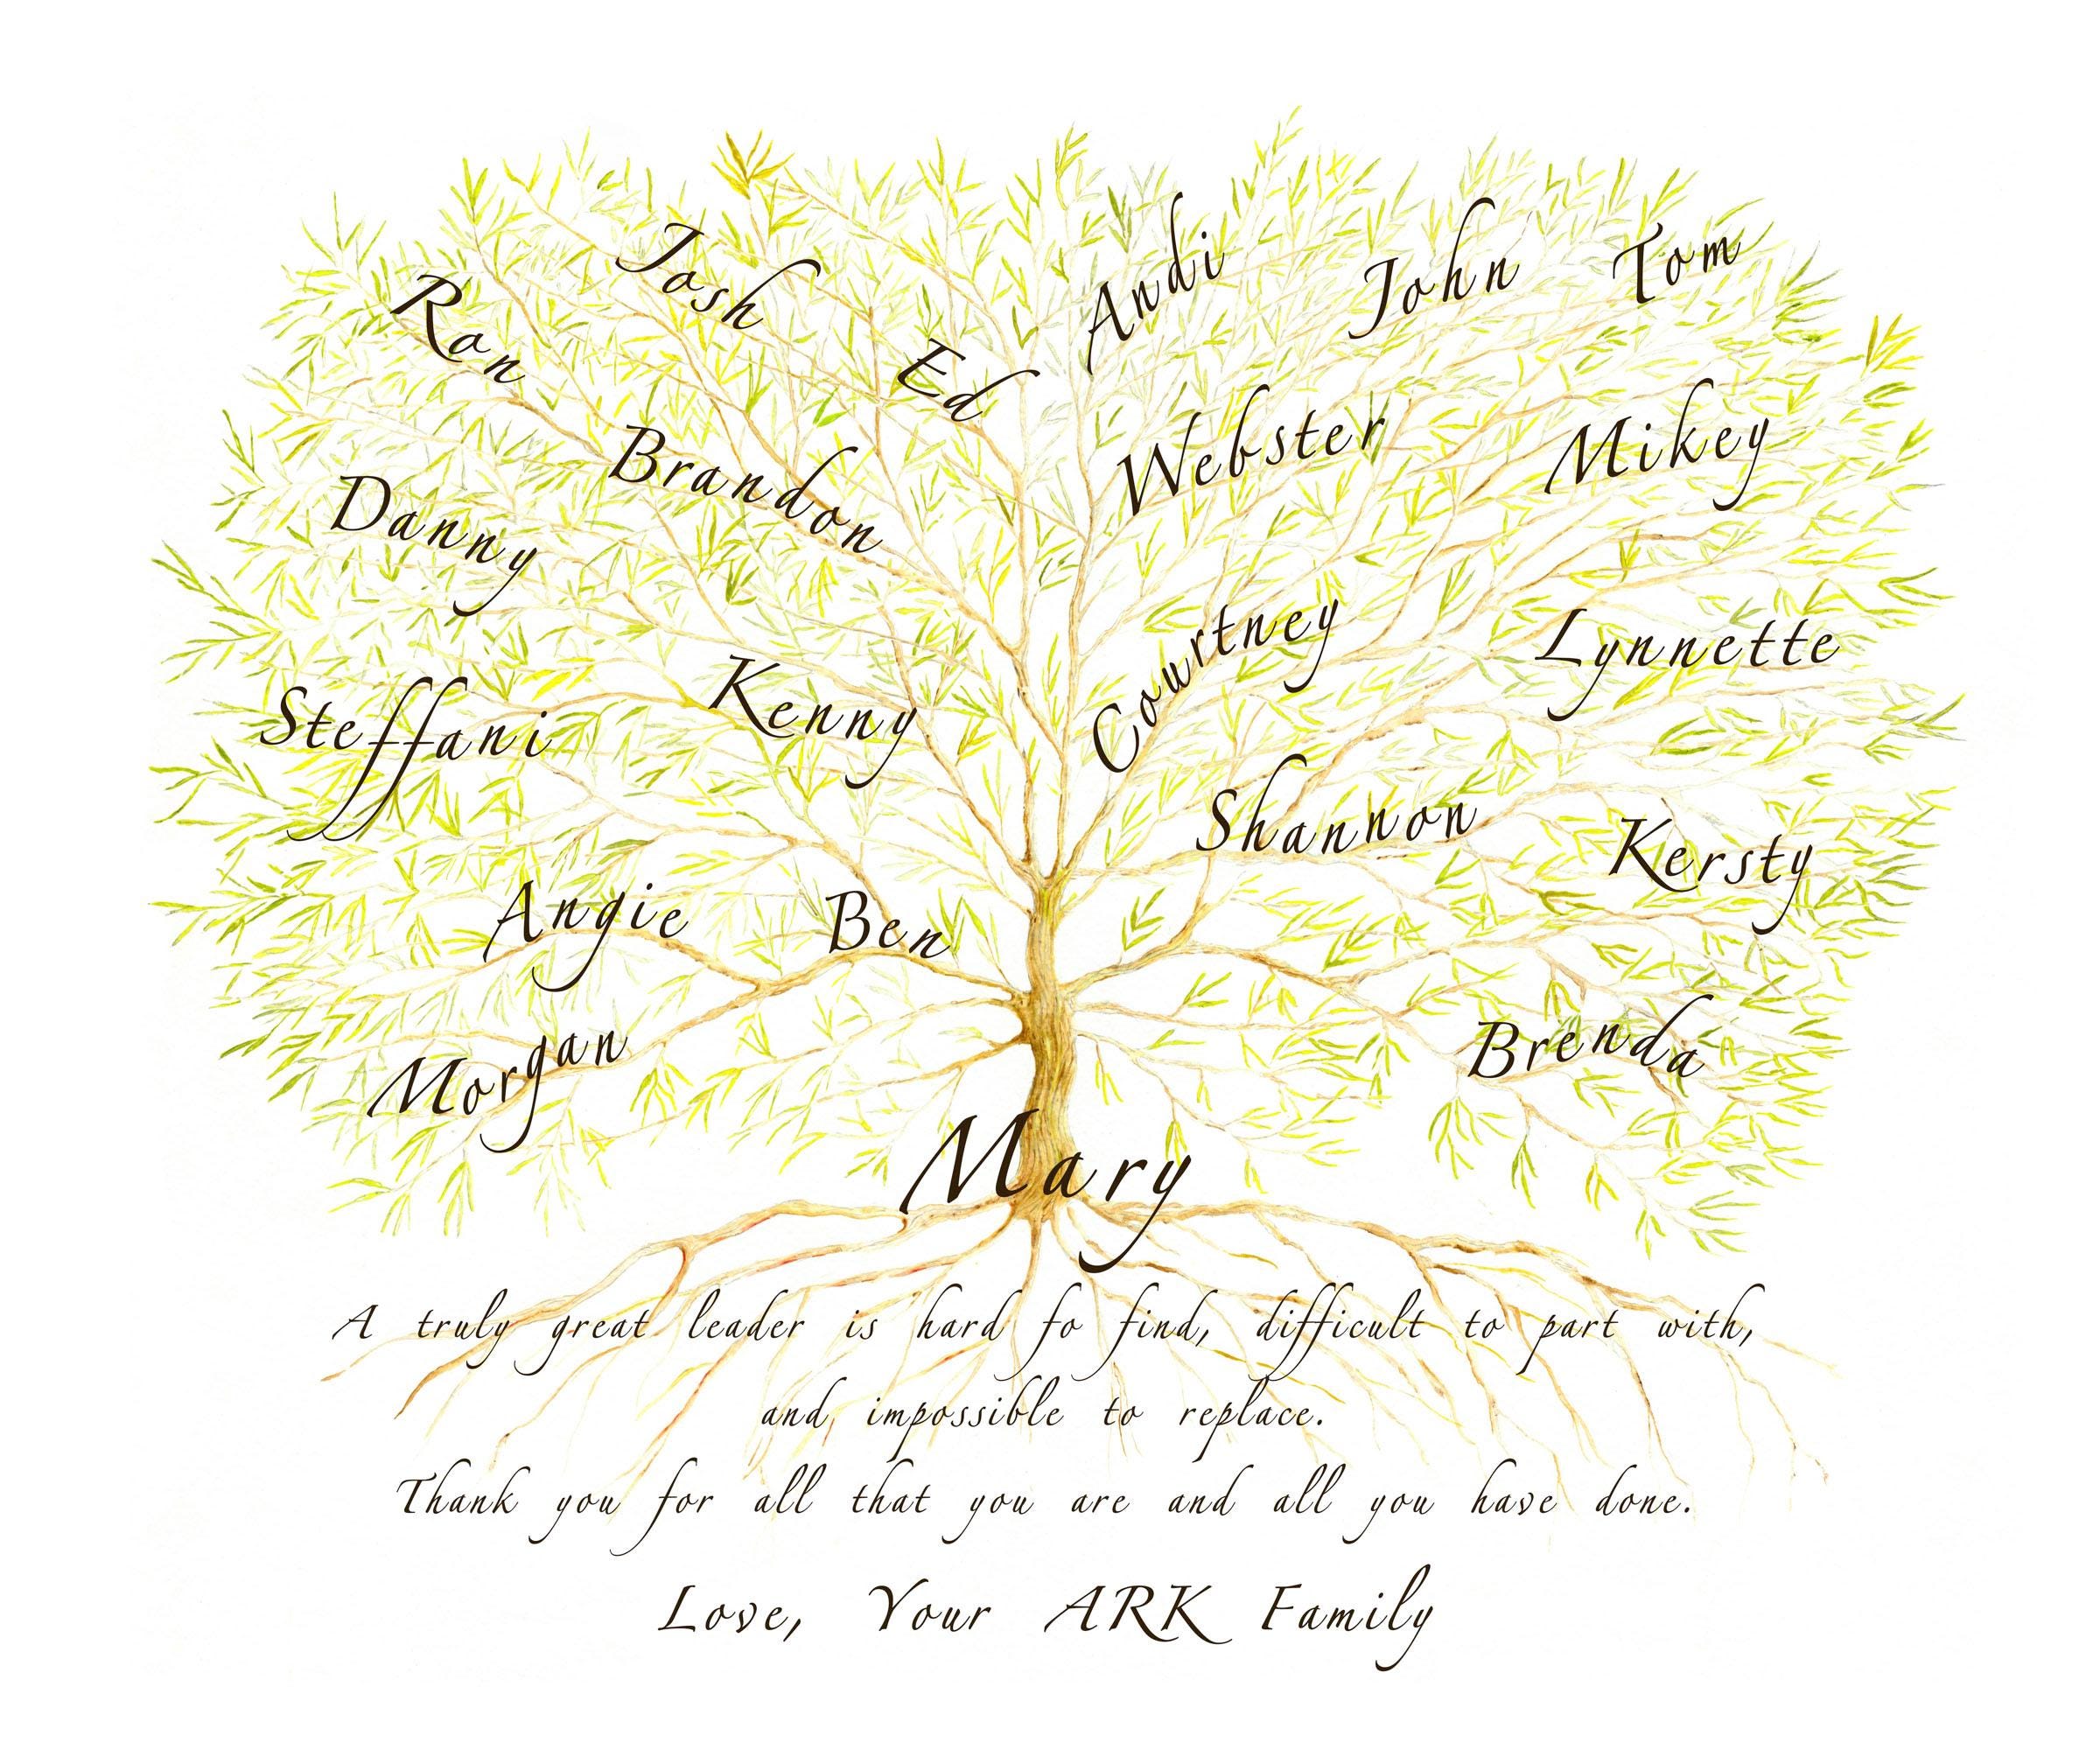 Andi
John
Tom
Josh
Ron
Ed
Webster
Mikey
Brandon
Danny
Courtney
Lynnette
Kenny
Steffani
Shannon
Kersty
Angie
Ben
Morgan
Brenda
Mary
A truly great leader is hard fo find, difficult to part with,
and impossible to replace.
Thank you for all that you are and all you have done.
Love, Your ARK Family